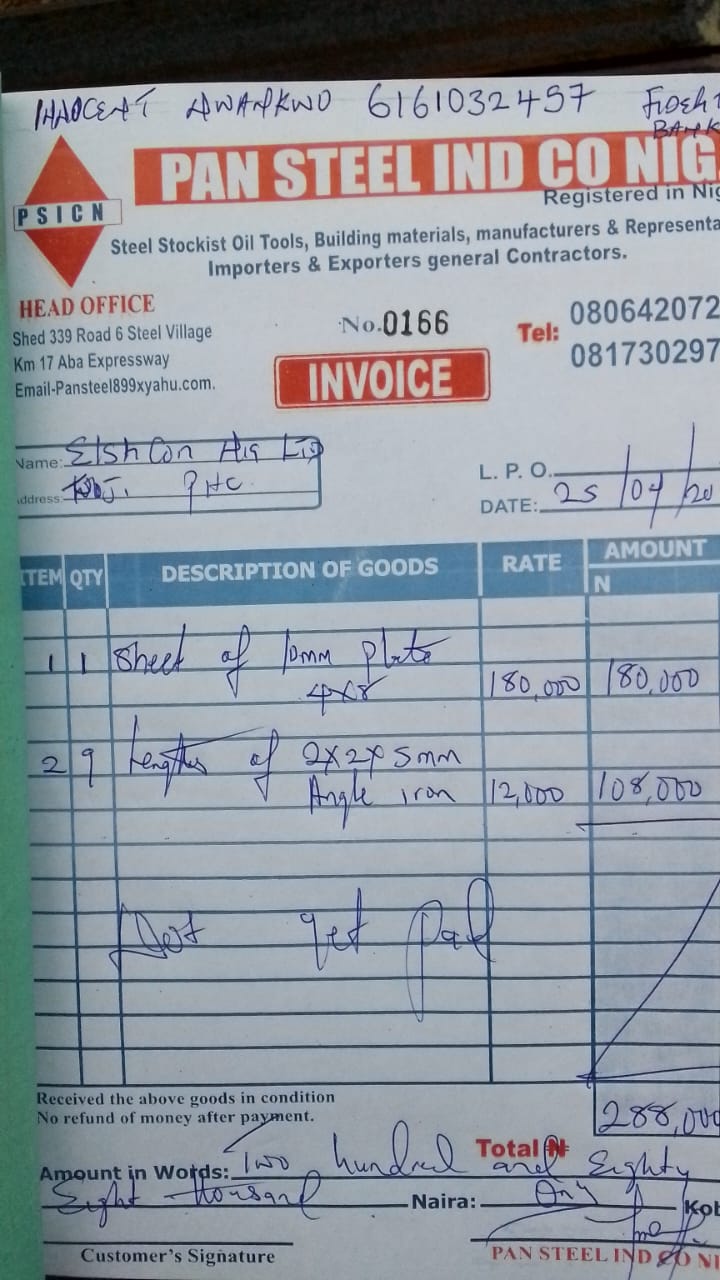 INNOCENT NWANKWO 6161032457 FIDELIT
BANK
PSICN
PAN STEEL IND CO NIG.
Registered in Nig
Steel Stockist Oil Tools, Building materials, manufacturers & Representa
Importers & Exporters general Contractors.
HEAD OFFICE
Shed 339 Road 6 Steel Village
Km 17 Aba Expressway
Email-Pansteel899xyahu.com.
No.0166
INVOICE
Tel: 080642072
081730297
Name: Elsh Con Nig Ltd
Address: PHC
L. P. O.
DATE: 25/04/20
ITEM QTY DESCRIPTION OF GOODS RATE AMOUNT
N
1 1 Sheet of 10mm plate
4x8 180,000 180,000
2 9 Lengths of 2x2x5mm
Angle iron 12,000 108,000
Not yet paid
Received the above goods in condition
No refund of money after payment.
Total ₦ 288,000
Amount in Words: Two hundred and Eighty
Eight thousand Naira: Only Kob
Customer's Signature
PAN STEEL IND CO NI